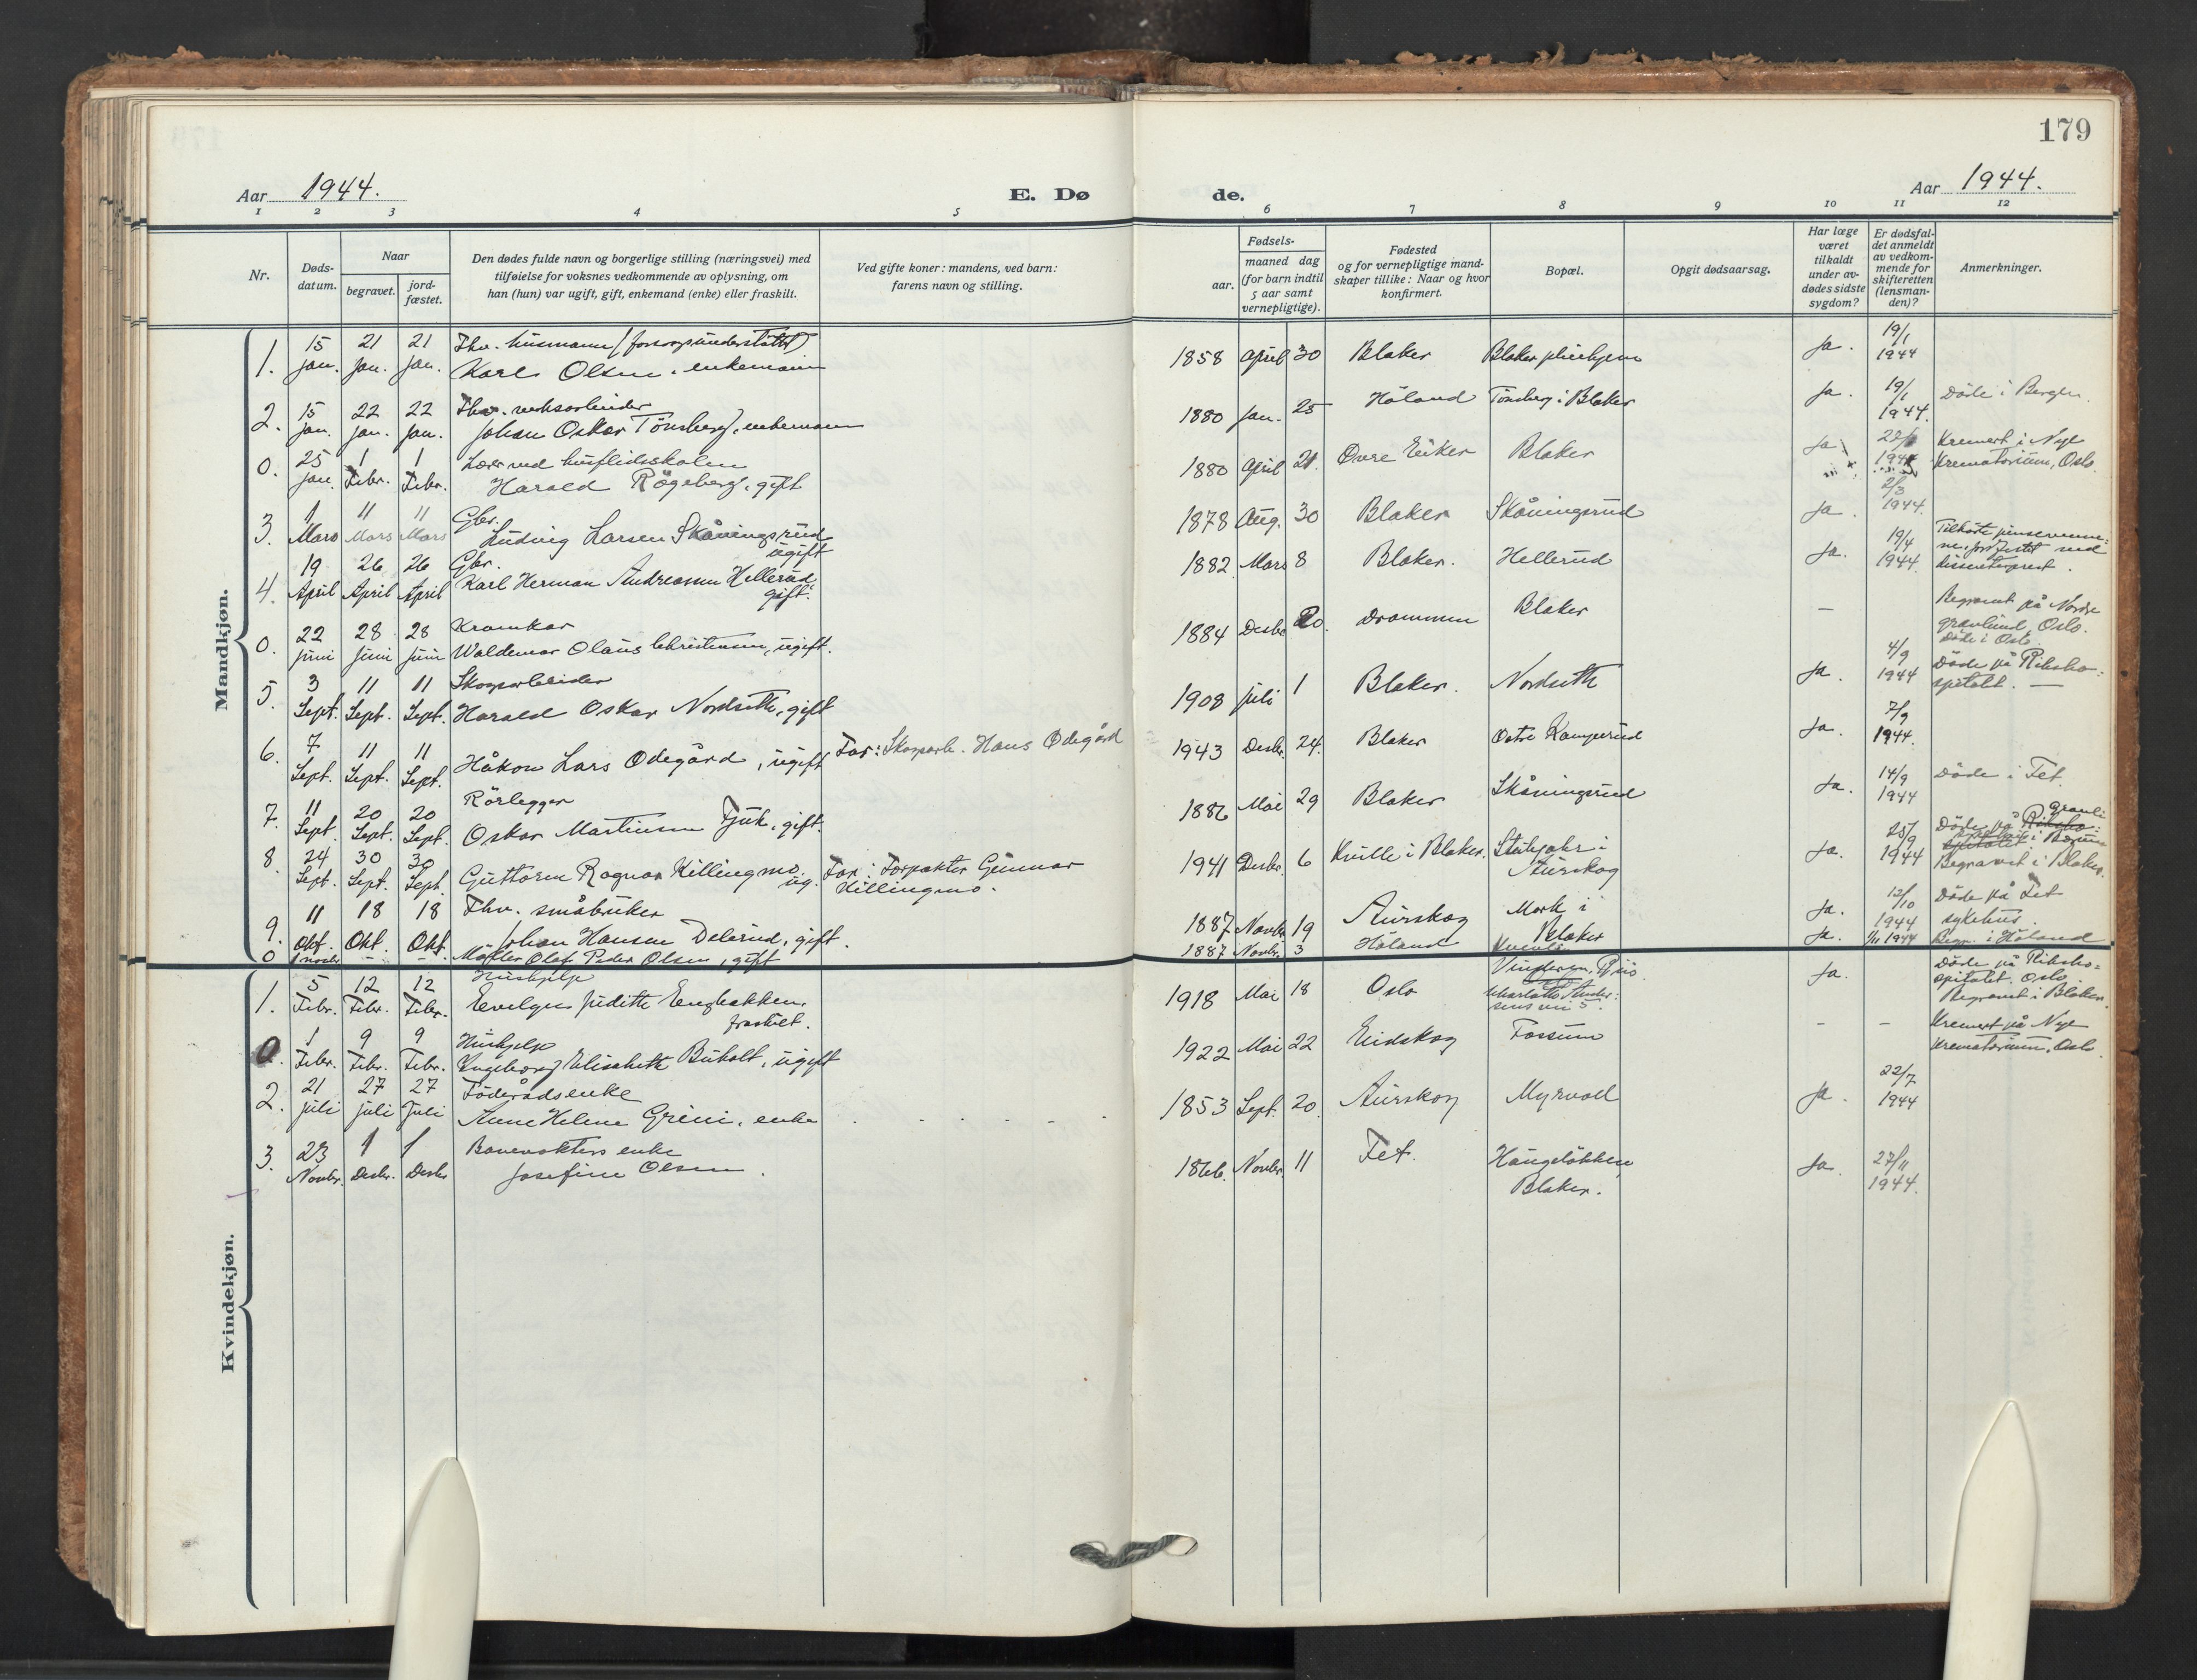 179
Aar 1944.
E. Dø
de.
Aar 1944.
1 2 3 4 5 6 7 8 9 10 11 12
Nr.
Døds-
datum.
Naar
begravet.
jord-
fæstet.
Den dødes fulde navn og borgerlige stilling (næringsvei) med
tilføielse for voksnes vedkommende av oplysning, om
han (hun) var ugift, gift, enkemand (enke) eller fraskilt.
Ved gifte koner: mandens, ved barn:
farens navn og stilling.
Fødsels-
aar.
maaned dag
(for barn indtil
5 aar samt
vernepligtige).
Fødested
og for vernepligtige mand-
skaper tillike: Naar og hvor
konfirmert.
Bopæl.
Opgit dødsaarsag.
Har læge
været
tilkaldt
under av-
dødes sidste
sygdom?
Er dødsfal-
det anmeldt
av vedkom-
mende for
skifteretten
(lensman-
den)?
Anmerkninger.
Mandkjøn.
1. 15 Jan. 21 Jan. 21 Jan. Fhv. husmann (forsorgsunderstøttet)
Karl Olsen, enkemann 1858 April 30 Blaker Blaker pleiehjem Ja. 19/1 1944
2. 15 Jan. 22 Jan. 22 Jan. Fhv. verksarbeider
Johan Oskar Tönsberg, enkemann 1880 Jan. 25 Höland Tönsberg i Blaker Ja. 19/1 1944. Döde i Bergen.
0. 25 Jan. 1 Febr. 1 Febr. Lærer ved husflidsskolen
Harald Rögeberg, gift 1880 April 21. Övre Eiker Blaker Ja Kremert i Nye
Krematorium, Oslo.
3. 1 Mars 11 Mars 11 Mars Gbr.
Ludvig Larsen Skåningsrud
ugift 1878 Aug. 30 Blaker Skåningsrud Ja. 2/3 1944.
4. 19 April 26 April 26 April Gbr.
Karl Herman Andreassen Hellerud
gift. 1882 Mars 8 Blaker. Hellerud Ja. 19/4 1944 Tilhörte pinsevenne-
ne, jordfestet ved
dissenterprest.
0. 22 Juni 28 Juni 28 Juni
Waldemar Olaus Christensen, ugift. 1884 Desbr. 20. Drammen Blaker — Begravet på Nordre
gravlund, Oslo.
Döde i Oslo
5. 3 Sept. 11 Sept. 11 Sept. Skogsarbeider
Harald Oskar Nordseth, gift 1908 Juli 1 Blaker. Nordseth Ja. 4/9 1944 Döde på Riksho-
spitalet. —
6. 7 Sept. 11 Sept. 11 Sept. Håkon Lars Ödegård, ugift Far: Skogsarb. Hans Ödegård 1943 Desbr. 24. Blaker Östre Kamperud Ja. 7/9 1944.
7. 11 Sept. 20 Sept. 20 Sept. Rörlegger
Oskar Martinsen Tjuk, gift. 1886 Mai 29 Blaker Skåningsrud Ja. 14/9 1944 Döde i Fet
8. 24 Sept. 30 Sept. 30 Sept. Guttorm Ragnar Killingmo, ug. Far: Forpakter Gunnar
Killingmo. 1941 Desbr. 6 Kulle i Blaker. i
Aurskog Ja. 25/9 1944 Döde på Riksho-
spitalet i Bærum
Begravet i Blaker.
9. 11 Okt. 18 Okt. 18 Okt. Fhv. småbruker
Johan Hansen Delerud, gift. 1887 Novbr. 19 Aurskog Mork i
Blaker Ja. 12/10 1944 Döde på Fet
sykehus.
0 1 novbr. – – Möller Olaf Peder Olsen, gift 1887 Novbr. 3 Höland Ja. 1/11 1944 Begr. i Höland
Kvindekjøn.
1. 5 Febr. 12 Febr. 12 Febr. Hushjelp
Eevelyn Judith Engbakken,
fraskilt. 1918 Mai 18 Oslo Vinderen, Riis Ja. Döde på Riksho-
spitalet. Oslo.
Begravet i Blaker.
0. 1 Febr. 9 Febr. 9 Febr. Hushjelp
Ingeborg Elisabeth Buholt, ugift 1922 Mai 22 Eidskog Fossum – – Kremert på Nye
Krematorium, Oslo.
2. 21 Juli 27 Juli 27 Juli Föderådsenke
Anne Helene Greni, enke 1853 Sept. 20. Aurskog Myrvoll Ja. 22/7 1944
3. 23 Novbr. 1 Desbr. 1 Desbr Banevokters enke
Josefine Olsen. 1866. Novbr. 11 Fet. Haugelökken
Blaker. Ja. 27/11 1944.